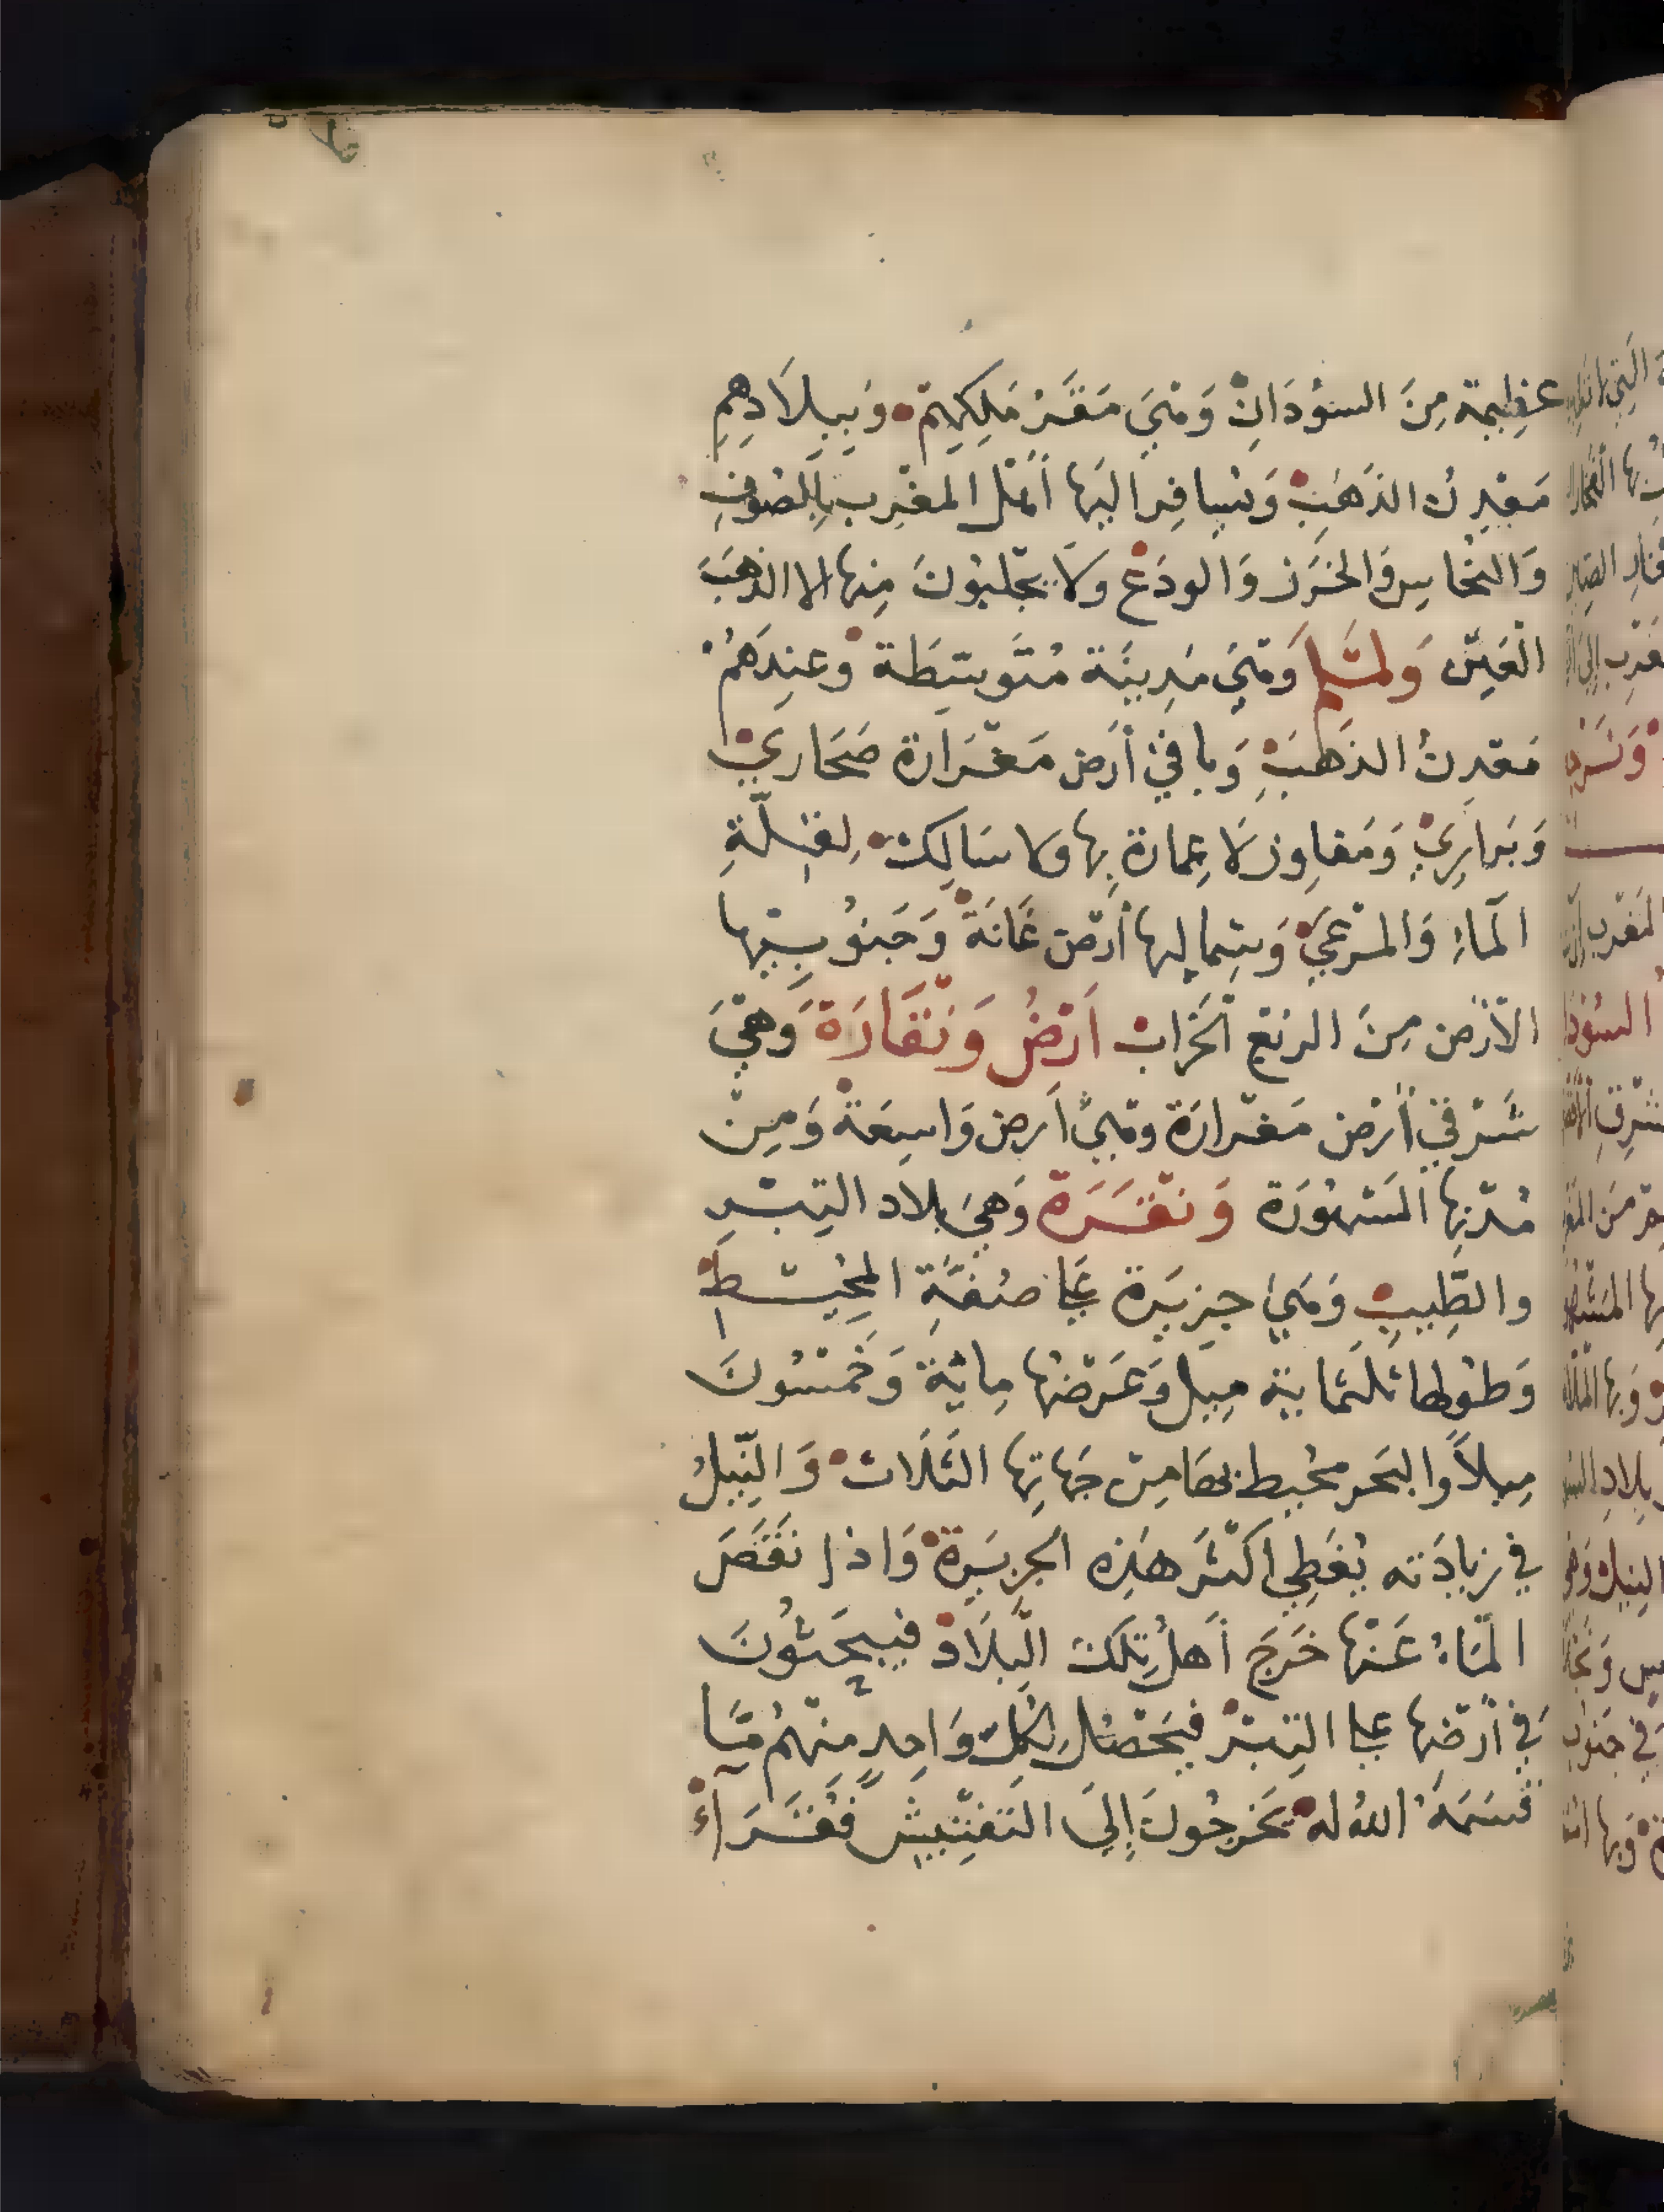 عظِيمة مِنَ السوُدَانِ وَهيَ مَقَرُ مَلِكِهِمْ وَبِبِلاَدِهِمِ
مَعْدِنُ الذَهَبِ وَيُسافِرُ اليَها أَهْل المغْرِب بِالصُوفِ
وَالنُحَاسِ وَالخَرَز وَالودَعْ وَلاَ يجْلبُونَ مِنها الا الذهَبَ
الْعَيْن وَلمْلَم وَهْيَ مَدِينَة مُتَوسِّطَة وَعندَهُمْ
مَعْدِنُ الذَهَبِ وَباقيْ أَرَض مَغْزَارَة صَحَاريْ
وَبَرارِيْ وَمَفاوِز لاَ عِمَارَة بِها وَلا سَالِكْ لِقِلَّةِ
المَاءِ وَالمَرْعيَ وَشِمالِها أَرْض غَانَة وَجَنوُبِيْها
الأَرْض مِنَ الربْع الخَرَاب اَرْضُ وَنْقَارَة وَهْيَ
شَرْقي أَرْض مَغْزارَة وَهْيَ اَرض وَاسِعَة وَمِنْ
مُدْنِها المَشْهُورَة وَنْقَرَة وَهيَ بلاد التِبْرِ
والطِيبِ وَهَيَ جِزيَرة عَلى ضفَّةِ المحُيْطِ
وَطوُلها ثلَثمَاية مِيل وَعَرْضُها مِايَة وَخَمْسُونَ
مِيلاً وَالبَحر محُيط بهَا مِن جَهاتِها الثَلَاث وَالنِّيلُ
في زيادَته يُغَطِي اكْثَر هَذِه الجزيَرِة وَاذا نقَصَ
المَاءُ عَنْها خَرَجَ أَهلُ تِلكَ البِلَادْ فيبحَثوُنَ
في أَرْضِها على التِبرْ فيَحْصُلُ لِكُلِّ وَاحِدٍ مِنْهُم مَّا
قَسَمَهُ اللهُ له يَخرجُونَ إِليَ التفْتِيشِ فُقَرَاءْ